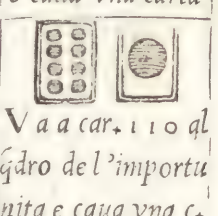 V a a car. 110 ql
q̃dro de l'importu
nita e caua vna c.